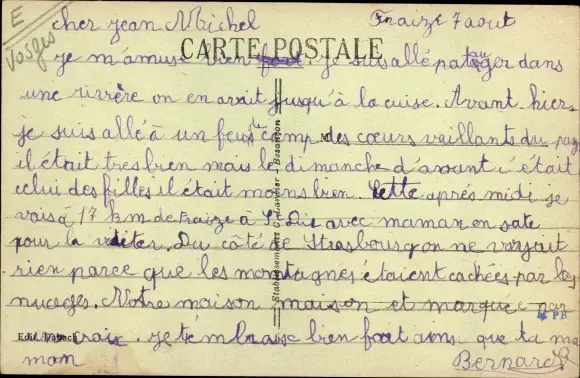 E
Vosges
cher jean Michel Fraize 7 aout
CARTE POSTALE
je m'amuse bien fort. je suis allé patauger dans
une rivière on en avait jusqu'à la cuise. Avant hier
je suis allé à un feus de camp des cœurs vaillants du pays
il était tres bien mais le dimanche d'avant c'était
celui des filles il était moins bien. Cette après midi je
vais à 17 km de Fraize à St Dié avec maman en
pour la visiter. Du côté de Strasbourg on ne voyait
rien parce que les montagnes étaient cachées par les
nuages. Notre maison maison et marquée par
croix. je t'embrasse bien fort ains que ta ma
man Bernard
Etablissements C. Lardier - Besançon
PR